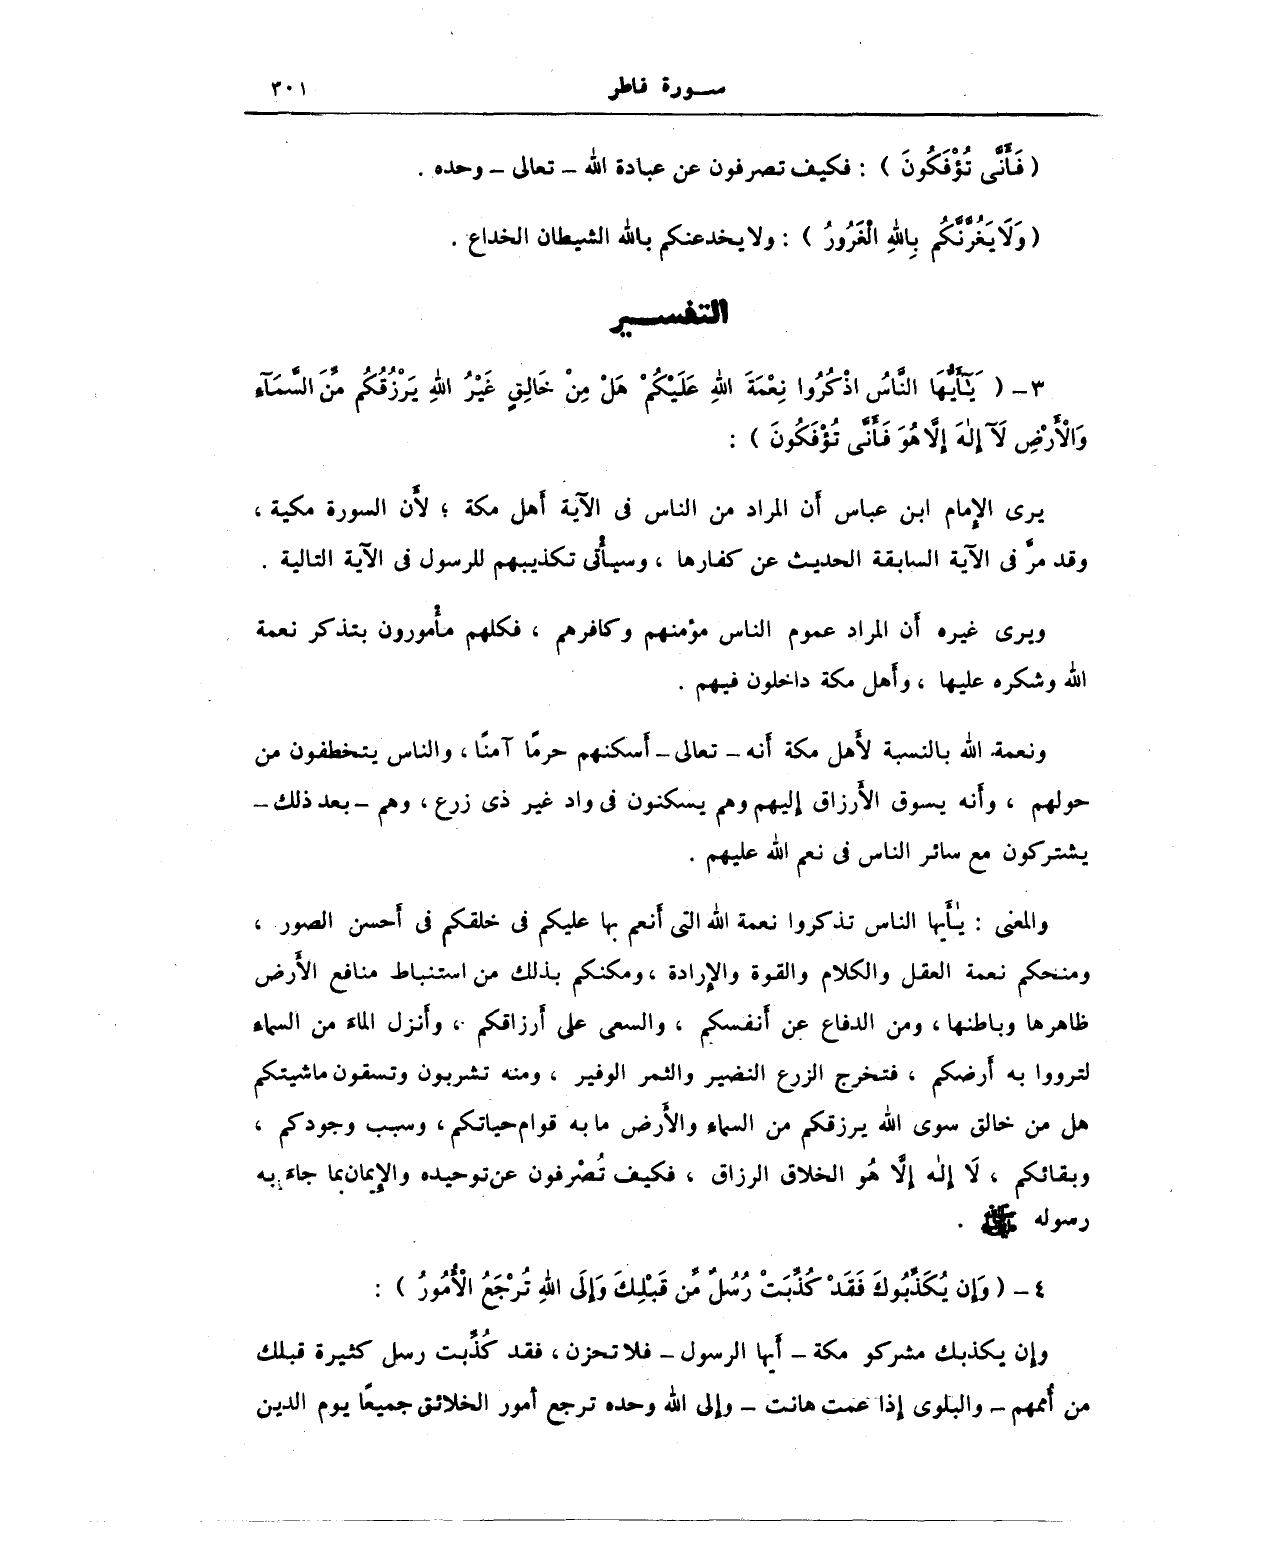 سورة فاطر ٣٠١
( فَأَنَّى تُؤْفَكُونَ ) : فكيف تصرفون عن عبادة الله – تعالى – وحده .
( وَلَا يَغُرَّنَّكُم بِاللهِ الْغَرُورُ ) : ولا يخدعنكم بالله الشيطان الخداع .
التفسير
٣ – ( يَٰٓأَيُّهَا النَّاسُ اذْكُرُوا نِعْمَةَ اللهِ عَلَيْكُمْ هَلْ مِنْ خَالِقٍ غَيْرُ اللهِ يَرْزُقُكُم مِّنَ السَّمَآءِ
وَالْأَرْضِ لَآ إِلٰهَ إِلَّا هُوَ فَأَنَّى تُؤْفَكُونَ ) :
يرى الإمام ابن عباس أن المراد من الناس فى الآية أهل مكة ؛ لأن السورة مكية ،
وقد مرَّ فى الآية السابقة الحديث عن كفارها ، وسيأتى تكذيبهم للرسول فى الآية التالية .
ويرى غيره أن المراد عموم الناس مؤمنهم وكافرهم ، فكلهم مأمورون بتذكر نعمة
الله وشكره عليها ، وأهل مكة داخلون فيهم .
ونعمة الله بالنسبة لأهل مكة أنه – تعالى – أسكنهم حرمًا آمنًا ، والناس يتخطفون من
حولهم ، وأنه يسوق الأرزاق إليهم وهم يسكنون فى واد غير ذى زرع ، وهم – بعد ذلك –
يشتركون مع سائر الناس فى نعم الله عليهم .
والمعنى : يٰأيها الناس تذكروا نعمة الله التى أنعم بها عليكم فى خلقكم فى أحسن الصور ،
ومنحكم نعمة العقل والكلام والقوة والإرادة ، ومكنكم بذلك من استنباط منافع الأرض
ظاهرها وباطنها ، ومن الدفاع عن أنفسكم ، والسعى على أرزاقكم ، وأنزل الماءَ من السماء
لترووا به أرضكم ، فتخرج الزرع النضير والثمر الوفير ، ومنه تشربون وتسقون ماشيتكم
هل من خالق سوى الله يرزقكم من السماء والأرض ما به قوام حياتكم ، وسبب وجودكم ،
وبقائكم ، لَا إِلٰه إِلَّا هُو الخلاق الرزاق ، فكيف تُصْرفون عن توحيده والإيمان بما جاءَ به
رسوله ﷺ .
٤ – ( وَإِن يُكَذِّبُوكَ فَقَدْ كُذِّبَتْ رُسُلٌ مِّن قَبْلِكَ وَإِلَى اللهِ تُرْجَعُ الْأُمُورُ ) :
وإن يكذبك مشركو مكة – أيها الرسول – فلا تحزن ، فقد كُذِّبت رسل كثيرة قبلك
من أممهم – والبلوى إذا عمت هانت – وإلى الله وحده ترجع أمور الخلائق جميعًا يوم الدين